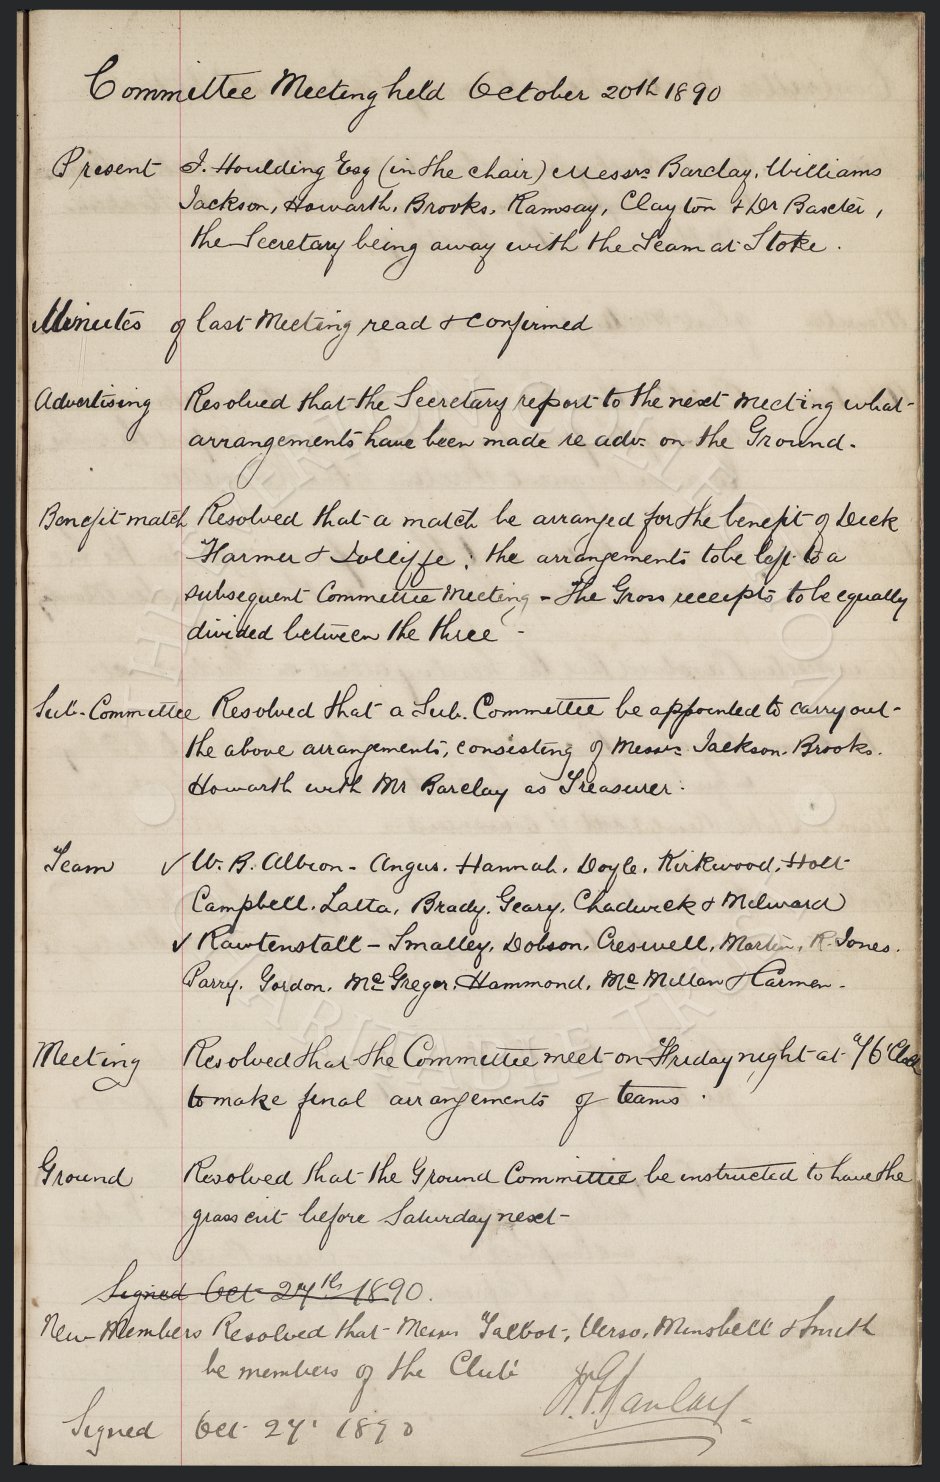 Committee Meeting held October 20th 1890
Present J. Houlding Esq (in the chair) Messrs Barclay, Williams
Jackson, Howarth, Brooks, Ramsay, Clayton & Dr Baxter,
the Secretary being away with the Team at Stoke.
Minutes of last Meeting read & confirmed
Advertising Resolved that the Secretary report to the next Meeting what
arrangements have been made re adv. on the Ground.
Benefit match Resolved that a match be arranged for the benefit of Dick
Harmer & Jolliffe; the arrangements to be left to a
subsequent Committee Meeting - The Gross receipts to be equally
divided between the three -
Sub-Committee Resolved that a Sub. Committee be appointed to carry out
the above arrangements, consisting of Messrs Jackson. Brooks.
Howarth with Mr Barclay as Treasurer.
Team ✓ W. B. Albion - Angus. Hannah. Doyle. Kirkwood. Holt
Campbell. Latta. Brady. Geary. Chadwick & Milward
✓ Rawtenstall - Smalley. Dobson. Creswell. Martin. R. Jones.
Parry. Gordon. McGregor. Hammond. McMillan & Carmen.
Meeting Resolved that the Committee meet on Friday night at 7 O'Clock
to make final arrangements of teams.
Ground Resolved that the Ground Committee be instructed to have the
grass cut before Saturday next
Signed Oct 27th 1890.
New Members Resolved that Messrs Talbot, Verso, Minshell & Smith
be members of the Club
Signed Oct 27. 1890